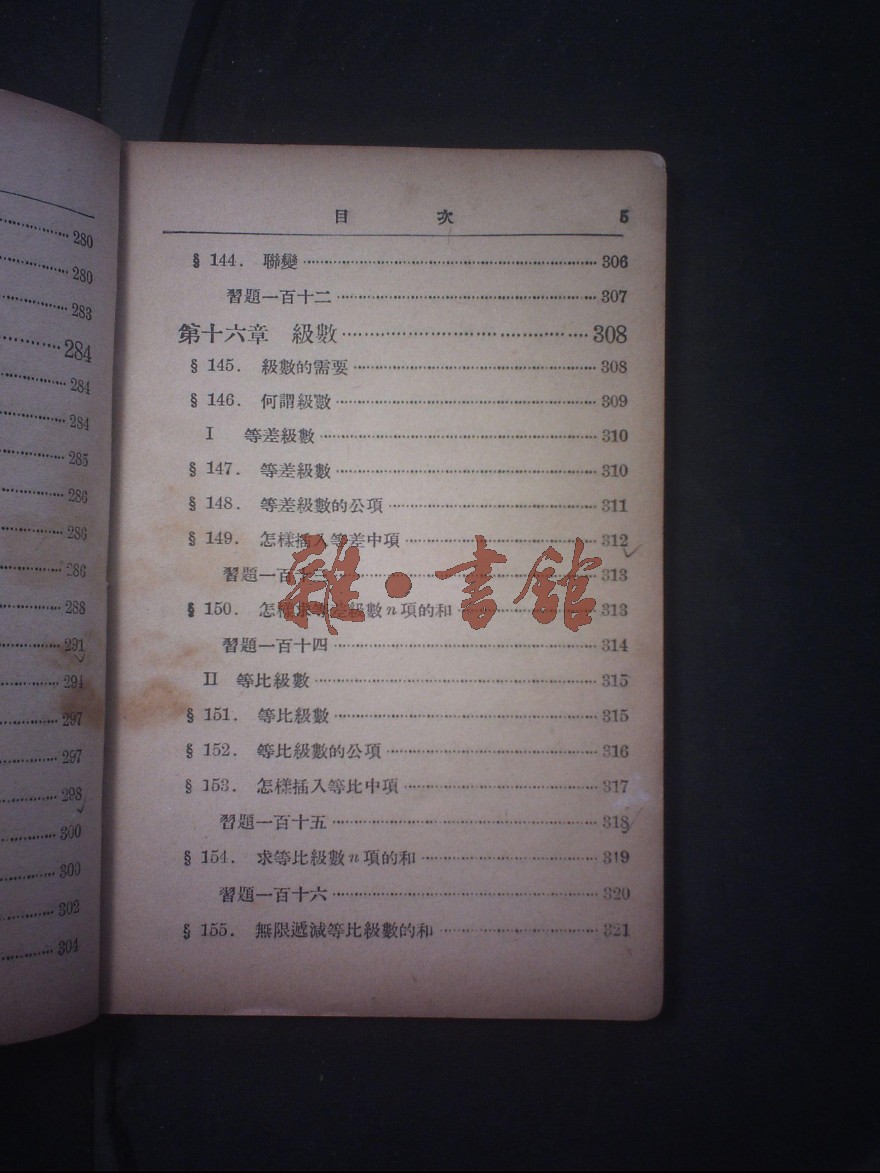 280
280
283
284
284
284
285
286
286
286
288
291
294
297
297
298
300
300
302
304
目 次 5
§ 144. 聯變 306
習題一百十二 307
第十六章 級數 308
§ 145. 級數的需要 308
§ 146. 何謂級數 309
I 等差級數 310
§ 147. 等差級數 310
§ 148. 等差級數的公項 311
§ 149. 怎樣插入等差中項 312
習題一百十三 313
§ 150. 怎樣求等差級數n項的和 313
習題一百十四 314
II 等比級數 315
§ 151. 等比級數 315
§ 152. 等比級數的公項 316
§ 153. 怎樣插入等比中項 317
習題一百十五 318
§ 154. 求等比級數n項的和 319
習題一百十六 320
§ 155. 無限遞減等比級數的和 321
雜·書館